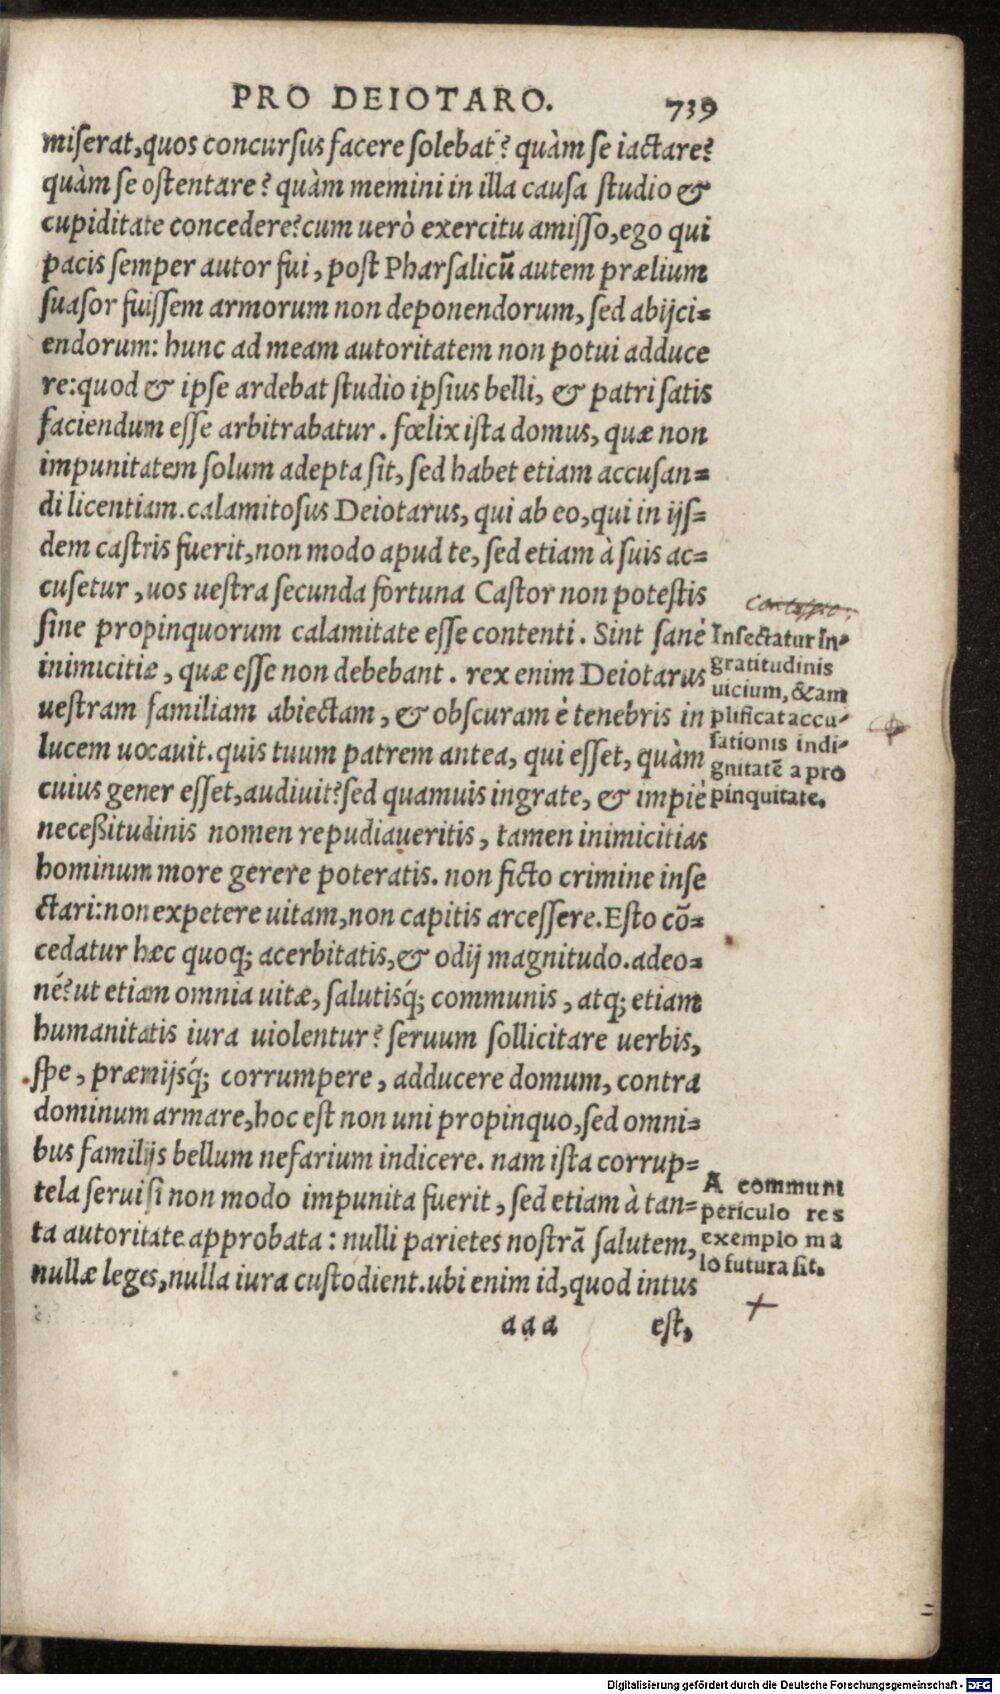 PRO DEIOTARO. 739
miſerat,quos concurſus facere ſolebat? quàm ſe iactare?
quàm ſe oſtentare? quàm memini in illa cauſa ſtudio &
cupiditate concedere?cum uerò exercitu amiſſo,ego qui
pacis ſemper autor fui, poſt Pharſalicū autem prælium
ſuaſor fuiſſem armorum non deponendorum, ſed abijci=
endorum: hunc ad meam autoritatem non potui adduce
re:quod & ipſe ardebat ſtudio ipſius belli, & patri ſatis
faciendum eſſe arbitrabatur. fœlix iſta domus, quæ non
impunitatem ſolum adepta ſit, ſed habet etiam accuſan=
di licentiam.calamitoſus Deiotarus, qui ab eo,qui in ijſ=
dem caſtris fuerit,non modo apud te, ſed etiam à ſuis ac=
cuſetur, uos ueſtra ſecunda fortuna Caſtor non poteſtis
ſine propinquorum calamitate eſſe contenti. Sint ſanè
inimicitiæ, quæ eſſe non debebant. rex enim Deiotarus
ueſtram familiam abiectam, & obſcuram è tenebris in
lucem uocauit.quis tuum patrem antea, qui eſſet, quàm
cuius gener eſſet,audiuit?ſed quamuis ingrate, & impiè
neceßitudinis nomen repudiaueritis, tamen inimicitias
hominum more gerere poteratis. non ficto crimine inſe
ctari:non expetere uitam,non capitis arceſſere.Eſto cō=
cedatur hæc quoq; acerbitatis,& odij magnitudo.adeo=
né?ut etiam omnia uitæ, ſalutisq́; communis, atq; etiam
humanitatis iura uiolentur? ſeruum ſollicitare uerbis,
ſpe, præmijsq́; corrumpere, adducere domum, contra
dominum armare,hoc eſt non uni propinquo,ſed omni=
bus familijs bellum nefarium indicere. nam iſta corrup=
tela ſerui ſi non modo impunita fuerit, ſed etiam à tan=
ta autoritate approbata: nulli parietes noſtrā ſalutem,
nullæ leges,nulla iura cuſtodient.ubi enim id,quod intus
aaa eſt,
Inſectatur In-
gratitudinis
uicium, & am
plificat accu-
ſationis indi-
gnitatē a pro
pinquitate.
A communi
periculo res
exemplo ma
lo futura ſit.
Digitalisierung gefördert durch die Deutsche Forschungsgemeinschaft - DFG